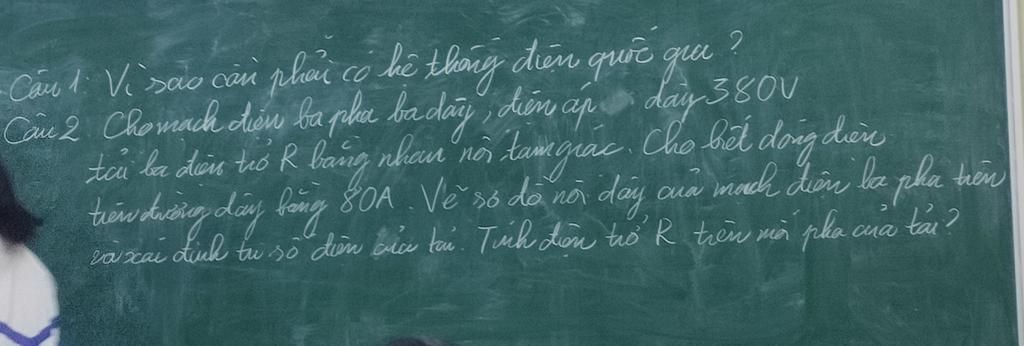 Câu 1. Vì sao cần phải có hệ thống điện quốc gia?
Câu 2. Cho mạch điện ba pha ba dây, điện áp dây 380V
tải ba điện trở R bằng nhau nối tam giác. Cho biết dòng điện
trên đường dây bằng 80A. Vẽ sơ đồ nối dây của mạch điện ba pha trên
và xác định trị số điện của tải. Tính điện trở R trên mỗi pha của tải?